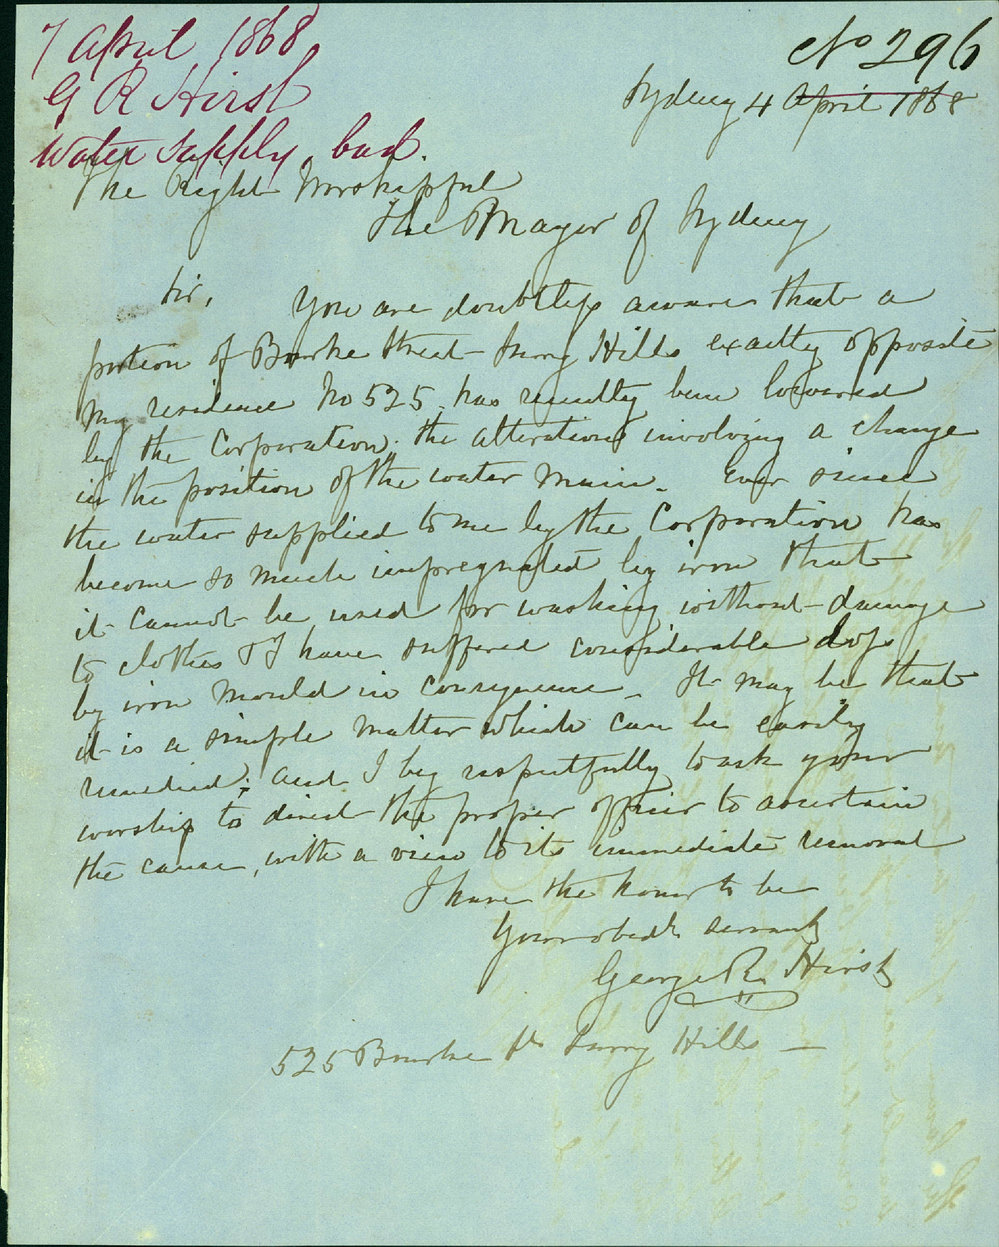 7 April 1868
G R Hirst
Water Supply bad.
No 296
Sydney 4 April 1868
The Right Worshipful
The Mayor of Sydney
Sir,
You are doubtless aware that a
portion of Bourke Street Surry Hills exactly opposite
my residence No 525, has recently been lowered
by the Corporation, the alterations involving a change
in the position of the water main. Ever since
the water supplied to me by the Corporation has
become so much impregnated by iron that
it cannot be used for washing without damage
to clothes & I have suffered considerable loss
by iron mould in consequence. It may be that
it is a simple matter which can be easily
remedied; and I beg respectfully to ask your
worship to direct the proper officer to ascertain
the cause, with a view to its immediate removal
I have the honor to be
Your obedt servant
George R. Hirst
525 Bourke St Surry Hills —